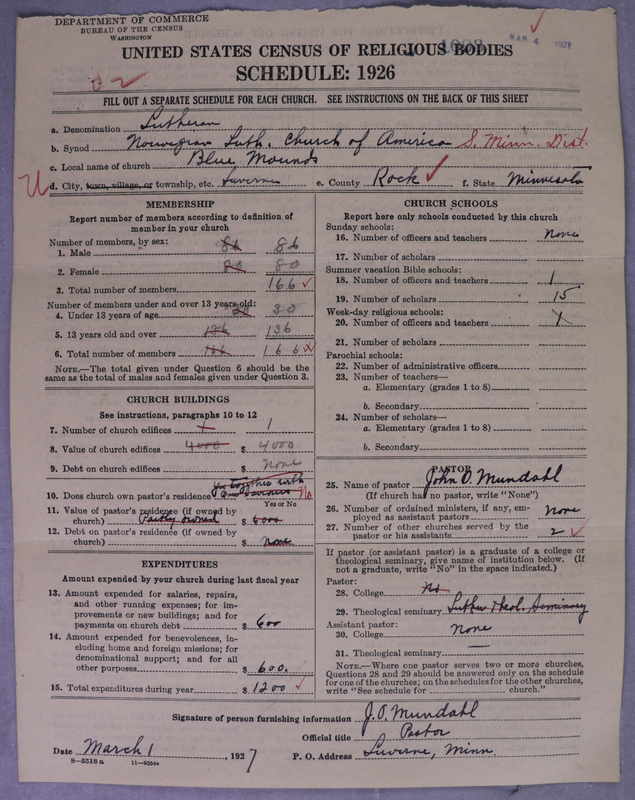 DEPARTMENT OF COMMERCE
BUREAU OF THE CENSUS
WASHINGTON
MAR 4 1927
UNITED STATES CENSUS OF RELIGIOUS BODIES
SCHEDULE: 1926
FILL OUT A SEPARATE SCHEDULE FOR EACH CHURCH. SEE INSTRUCTIONS ON THE BACK OF THIS SHEET
a. Denomination Lutheran
b. Synod Norwegian Luth. Church of America S. Minn. Dist.
c. Local name of church Blue Mounds
d. City, town, village, or township, etc. Luverne e. County Rock f. State Minnesota
MEMBERSHIP
Report number of members according to definition of member in your church
Number of members, by sex:
1. Male 86 86
2. Female 80 80
3. Total number of members 166
Number of members under and over 13 years old:
4. Under 13 years of age 30 30
5. 13 years old and over 136 136
6. Total number of members 166 166
NOTE.—The total given under Question 6 should be
same as the total of males and females given under Question 3.
CHURCH BUILDINGS
See instructions, paragraphs 10 to 12
7. Number of church edifices 1 1
8. Value of church edifices 4000 $ 4000
9. Debt on church edifices $ None
yes together with
10. Does church own pastor's residence No
Yes or No
11. Value of pastor's residence (if owned by
church) Partly owned $ 6000
12. Debt on pastor's residence (if owned by
church) $ None
EXPENDITURES
Amount expended by your church during last fiscal year
13. Amount expended for salaries, repairs,
and other running expenses; for im-
provements or new buildings; and for
payments on church debt $ 600
14. Amount expended for benevolences, in-
cluding home and foreign missions; for
denominational support; and for all
other purposes $ 600.
15. Total expenditures during year $ 1200
CHURCH SCHOOLS
Report here only schools conducted by this church
Sunday schools:
16. Number of officers and teachers None
17. Number of scholars
Summer vacation Bible schools:
18. Number of officers and teachers 1
19. Number of scholars 15
Week-day religious schools:
20. Number of officers and teachers
21. Number of scholars
Parochial schools:
22. Number of administrative officers
23. Number of teachers—
a. Elementary (grades 1 to 8)
b. Secondary
24. Number of scholars—
a. Elementary (grades 1 to 8)
b. Secondary
PASTOR
25. Name of pastor John O. Mundahl
(If church has no pastor, write "None")
26. Number of ordained ministers, if any, em-
ployed as assistant pastors None
27. Number of other churches served by the
pastor or his assistants 2
If pastor (or assistant pastor) is a graduate of a college or
theological seminary, give name of institution below. (If
not a graduate, write "No" in the space indicated.)
Pastor:
28. College No
29. Theological seminary Luther Theol. Seminary
Assistant pastor:
30. College None
31. Theological seminary —
NOTE.—Where one pastor serves two or more churches,
Questions 28 and 29 should be answered only on the schedule
for one of the churches; on the schedules for the other churches,
write "See schedule for ______ church."
Signature of person furnishing information J.O. Mundahl
Official title Pastor
Date March 1, 1927 P. O. Address Luverne, Minn.
8-5518 a 11-9354a